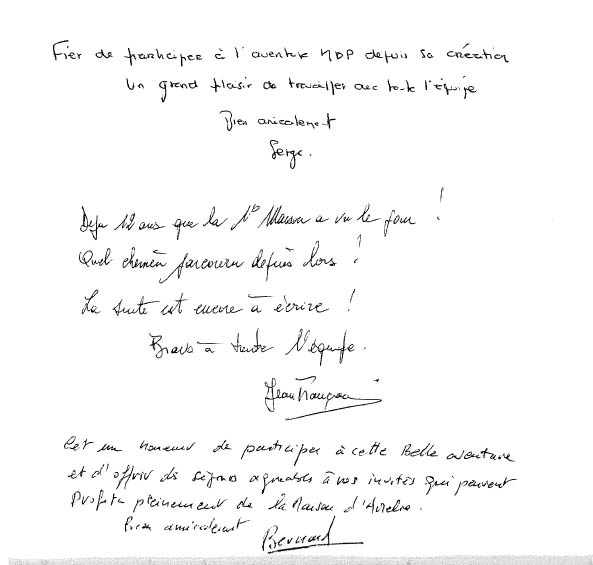 Fier de participer à l'aventure MDP depuis sa création
Un grand plaisir de travailler avec toute l'équipe
Bien amicalement
Serge.
Deja 12 ans que la 1° Maison a vu le jour !
Quel chemin parcouru depuis lors !
La suite est encore à écrire !
Bravo à toute l'équipe.
Jean François
Cet un honneur de participer à cette Belle aventure
et d'offrir ds séjours agréables à vos invités qui peuvent
Profiter pleinement de la Maison d'Aurelie.
Bien amicalement
Bernard